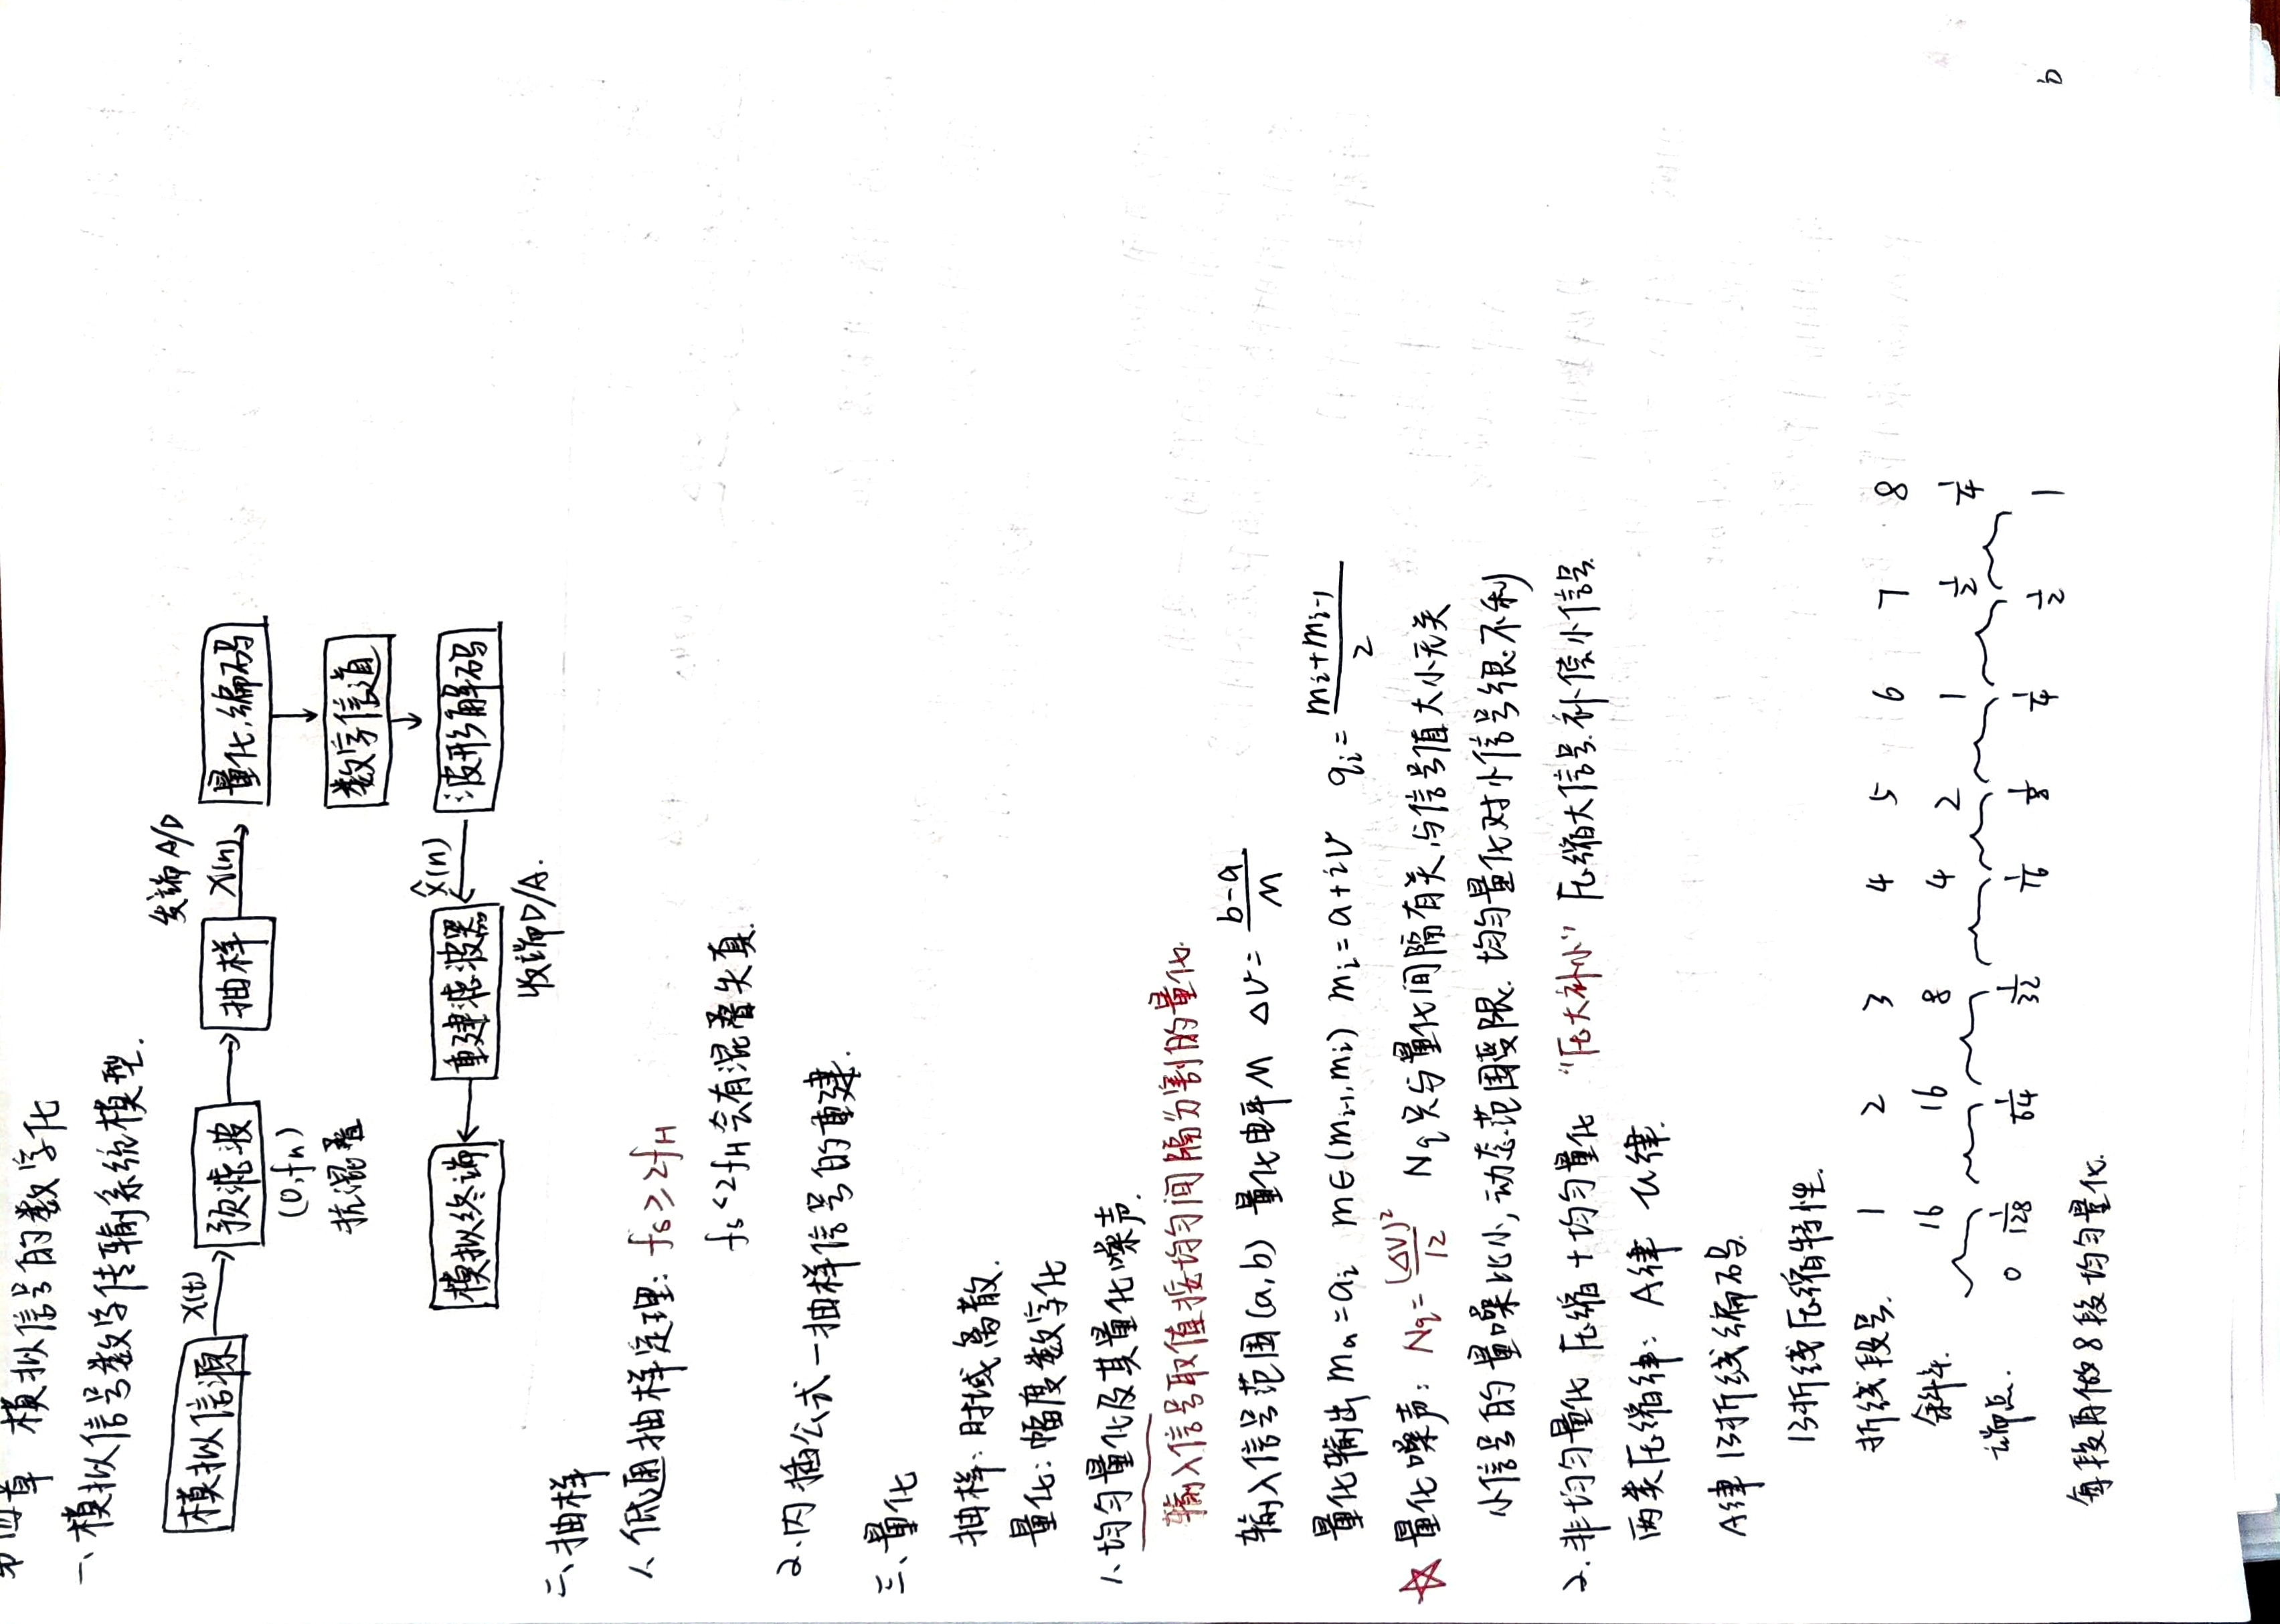 第四章 模拟信号的数字化
一、模拟信号数字传输系统模型.
发端A/D
模拟信源 x(t) 预滤波 抽样 x(n) 量化,编码
(0,fn)
抗混叠
数字信道
模拟终端 重建滤波器 x̂(n) 波形解码
收端D/A.
二、抽样
1、低通抽样定理: fs≥2fH
fs<2fH会有混叠失真.
2.内插公式—抽样信号的重建.
三、量化
抽样: 时域离散.
量化: 幅度数字化
1、均匀量化及其量化噪声.
输入信号取值按均匀间隔分割的量化.
输入信号范围(a,b) 量化电平M ΔV=(b-a)/M
量化输出 mq=qi m∈(mi-1,mi) mi=a+iV qi=(mi+mi-1)/2
☆ 量化噪声: Nq=(ΔV)²/12 Nq只与量化间隔有关,与信号值大小无关
小信号的量噪比小,动态范围受限. 均匀量化对小信号很不利
2.非均匀量化 压缩+均匀量化 "压大补小" 压缩大信号.补偿小信号
两类压缩律: A律 u律.
A律13折线编码.
13折线压缩特性.
折线段号. 1 2 3 4 5 6 7 8
斜率. 16 16 8 4 2 1 1/2 1/4
端点. 0 1/128 1/64 1/32 1/16 1/8 1/4 1/2 1
每段再做8段均匀量化.